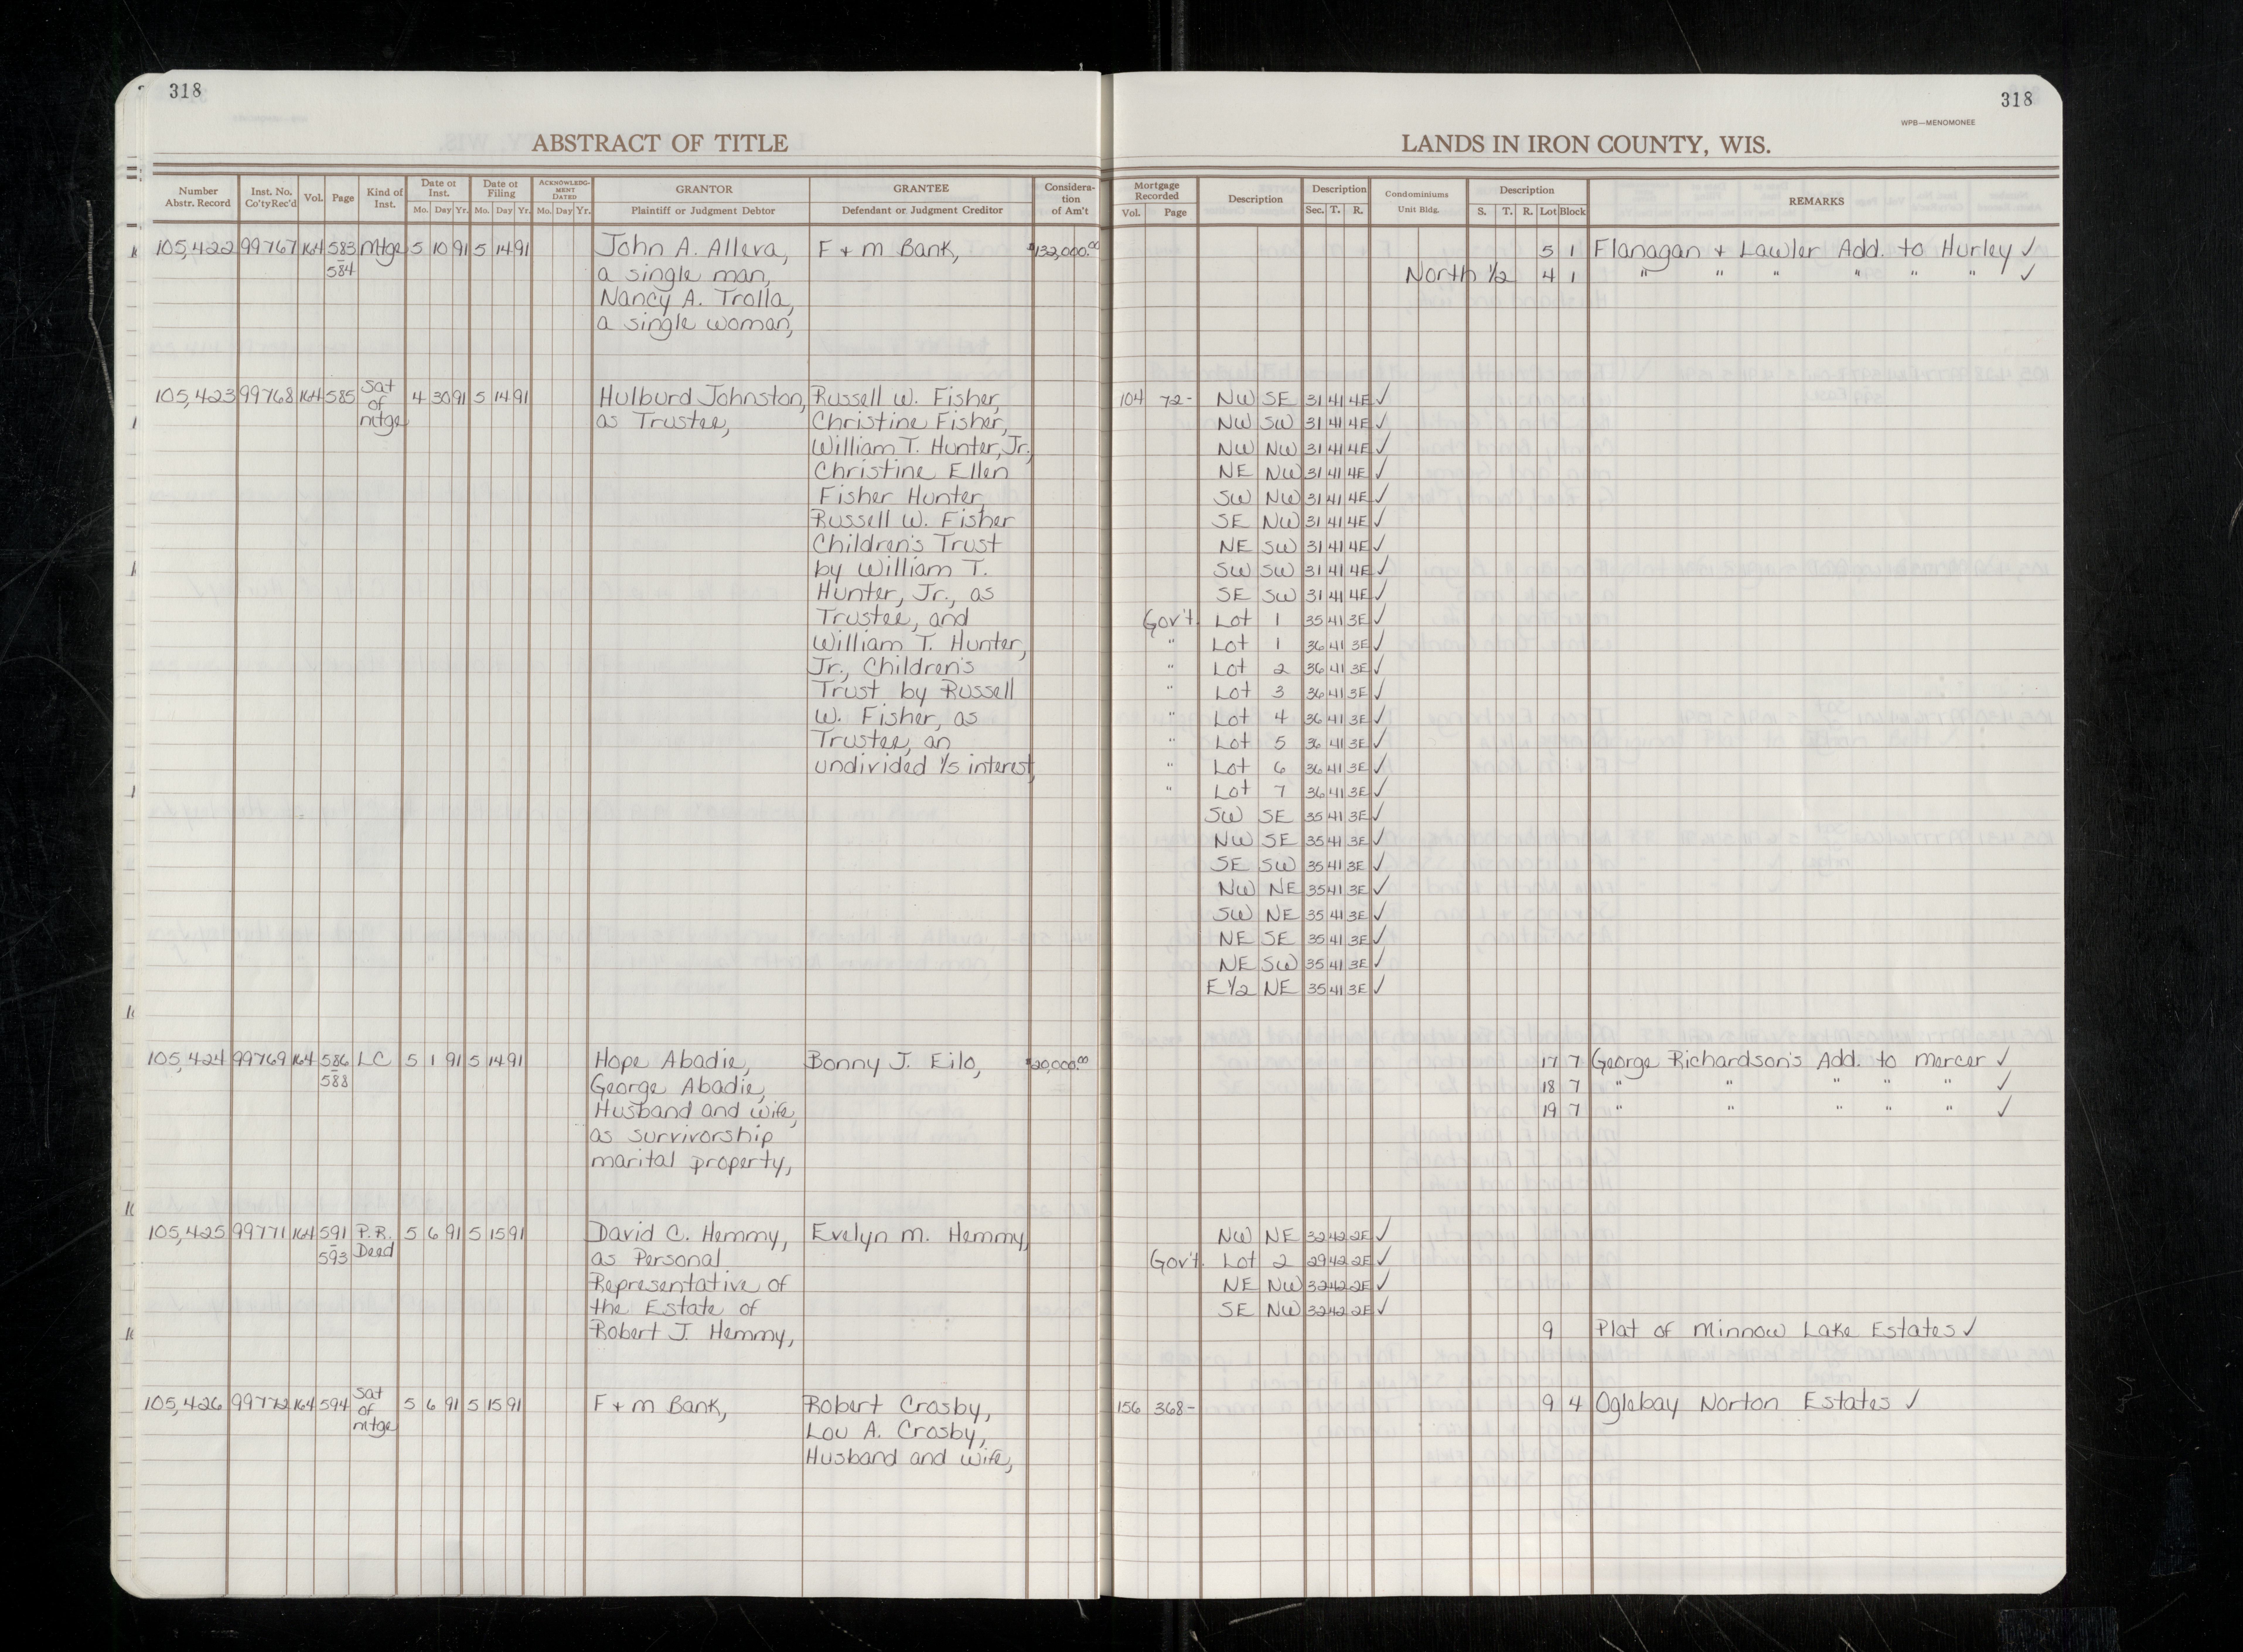 318
ABSTRACT OF TITLE
Number Abstr. Record | Inst. No. Co'ty Rec'd | Vol. | Page | Kind of Inst. | Date of Inst. Mo. Day Yr. | Date of Filing Mo. Day Yr. | ACKNOWLEDGMENT DATED Mo. Day Yr. | GRANTOR Plaintiff or Judgment Debtor | GRANTEE Defendant or Judgment Creditor | Consideration of Am't
105,422 99767 164 583 Mtge 5 10 91 5 14 91 John A. Alleva, F + M Bank, $132,000.00
584 a single man,
Nancy A. Trolla,
a single woman,
105,423 99768 164 585 Sat of Mtge 4 30 91 5 14 91 Hulburd Johnston, Russell W. Fisher,
as Trustee, Christine Fisher,
William T. Hunter, Jr.,
Christine Ellen
Fisher Hunter,
Russell W. Fisher
Children's Trust
by William T.
Hunter, Jr., as
Trustee, and
William T. Hunter,
Jr., Children's
Trust by Russell
W. Fisher, as
Trustee, an
undivided 1/5 interest,
105,424 99769 164 586 LC 5 1 91 5 14 91 Hope Abadie, Bonny J. Eilo, $20,000.00
588 George Abadie,
Husband and wife,
as survivorship
marital property,
105,425 99771 164 591 P.R. Deed 5 6 91 5 15 91 David C. Hemmy, Evelyn M. Hemmy,
593 as Personal
Representative of
the Estate of
Robert J. Hemmy,
105,426 99772 164 594 Sat of Mtge 5 6 91 5 15 91 F + M Bank, Robert Crosby,
Lou A. Crosby,
Husband and wife,
318
WPB—MENOMONEE
LANDS IN IRON COUNTY, WIS.
Mortgage Recorded Vol. Page | Description | Description Sec. T. R. | Condominiums Unit Bldg. | Description S. T. R. Lot Block | REMARKS
5 1 Flanagan + Lawler Add. to Hurley ✓
North 1/2 4 1 " " " " " " ✓
104 72- NW SE 31 41 4E ✓
NW SW 31 41 4E ✓
NW NW 31 41 4E ✓
NE NW 31 41 4E ✓
SW NW 31 41 4E ✓
SE NW 31 41 4E ✓
NE SW 31 41 4E ✓
SW SW 31 41 4E ✓
SE SW 31 41 4E ✓
Gov't. Lot 1 35 41 3E ✓
" Lot 1 36 41 3E ✓
" Lot 2 36 41 3E ✓
" Lot 3 36 41 3E ✓
" Lot 4 36 41 3E ✓
" Lot 5 36 41 3E ✓
" Lot 6 36 41 3E ✓
" Lot 7 36 41 3E ✓
SW SE 35 41 3E ✓
NW SE 35 41 3E ✓
SE SW 35 41 3E ✓
NW NE 35 41 3E ✓
SW NE 35 41 3E ✓
NE SE 35 41 3E ✓
NE SW 35 41 3E ✓
E 1/2 NE 35 41 3E ✓
17 7 George Richardson's Add. to Mercer ✓
18 7 " " " " " ✓
19 7 " " " " " ✓
NW NE 32 42 2E ✓
Gov't. Lot 2 29 42 2E ✓
NE NW 32 42 2E ✓
SE NW 32 42 2E ✓
9 Plat of Minnow Lake Estates ✓
156 368- 9 4 Oglebay Norton Estates ✓